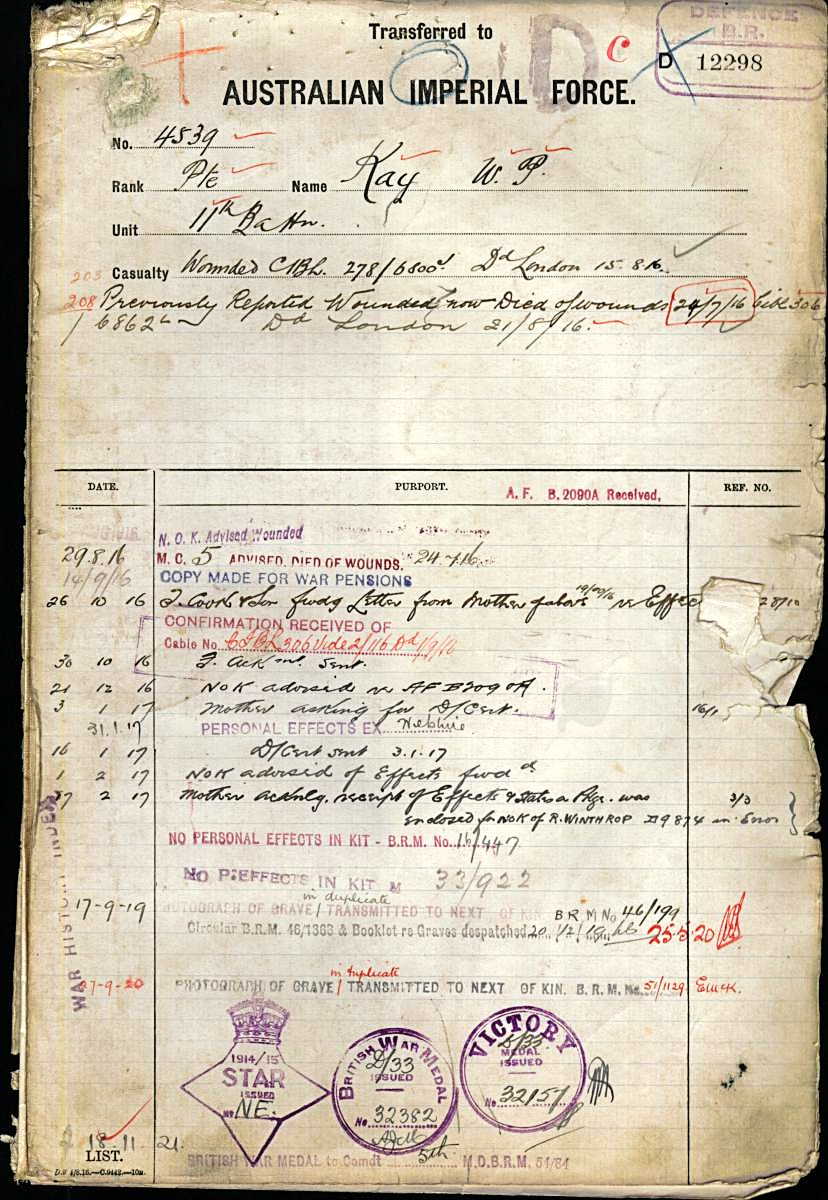 Transferred to
DEFENCE
B.R.
D 12298
D C
AUSTRALIAN IMPERIAL FORCE.
No. 4539
Rank Pte Name Kay W. P.
Unit 11th Battn.
203 Casualty Wounded CBL. 278/6800 Dd London 15.8.16
208 Previously Reported Wounded now Died of wounds 24/7/16 Cable 306
6862 Dd London 21/8/16.
DATE. PURPORT. REF. NO.
A. F. B.2090A Received,
N. O. K. Advised Wounded
29.8.16 M. C. 5 ADVISED, DIED OF WOUNDS, 24.7.16
14/9/16 COPY MADE FOR WAR PENSIONS
26 10 16 T. Cook & Son fwdg Letter from Mother re Effec
CONFIRMATION RECEIVED OF
Cable No. 306 Dd
30 10 16 Ack sent.
21 12 16 NOK advised re AFB2090A.
3 1 17 Mother asking for D/Cert. 16/1
31.1.17 PERSONAL EFFECTS EX
16 1 17 D/Cert sent 3.1.17
1 2 17 NOK advised of Effects fwdd
27 2 17 Mother acknlg. receipt of Effects & states a Pkge. was 3/3
enclosed for NOK of R. WINTHROP 9874 in Error
NO PERSONAL EFFECTS IN KIT - B.R.M. No. 16/447
NO P/EFFECTS IN KIT M 33/922
in duplicate
17-9-19 PHOTOGRAPH OF GRAVE / TRANSMITTED TO NEXT OF KIN B R M No 46/199
Circular B.R.M. 46/1363 & Booklet re Graves despatched 20/12/19 25.5.20
in triplicate
27-9-20 PHOTOGRAPH OF GRAVE / TRANSMITTED TO NEXT OF KIN. B. R. M. No. 51/1129
WAR HISTORY INDEX
1914/15
STAR
ISSUED
No NE.
BRITISH WAR MEDAL
D/33
ISSUED
No 32382
VICTORY
D/33
MEDAL
ISSUED
No 32151
18.11.21.
LIST.
BRITISH WAR MEDAL to Comdt 5th M.D.B.R.M. 51/84
D.P. 4/8.16.—C.9442.—10m.